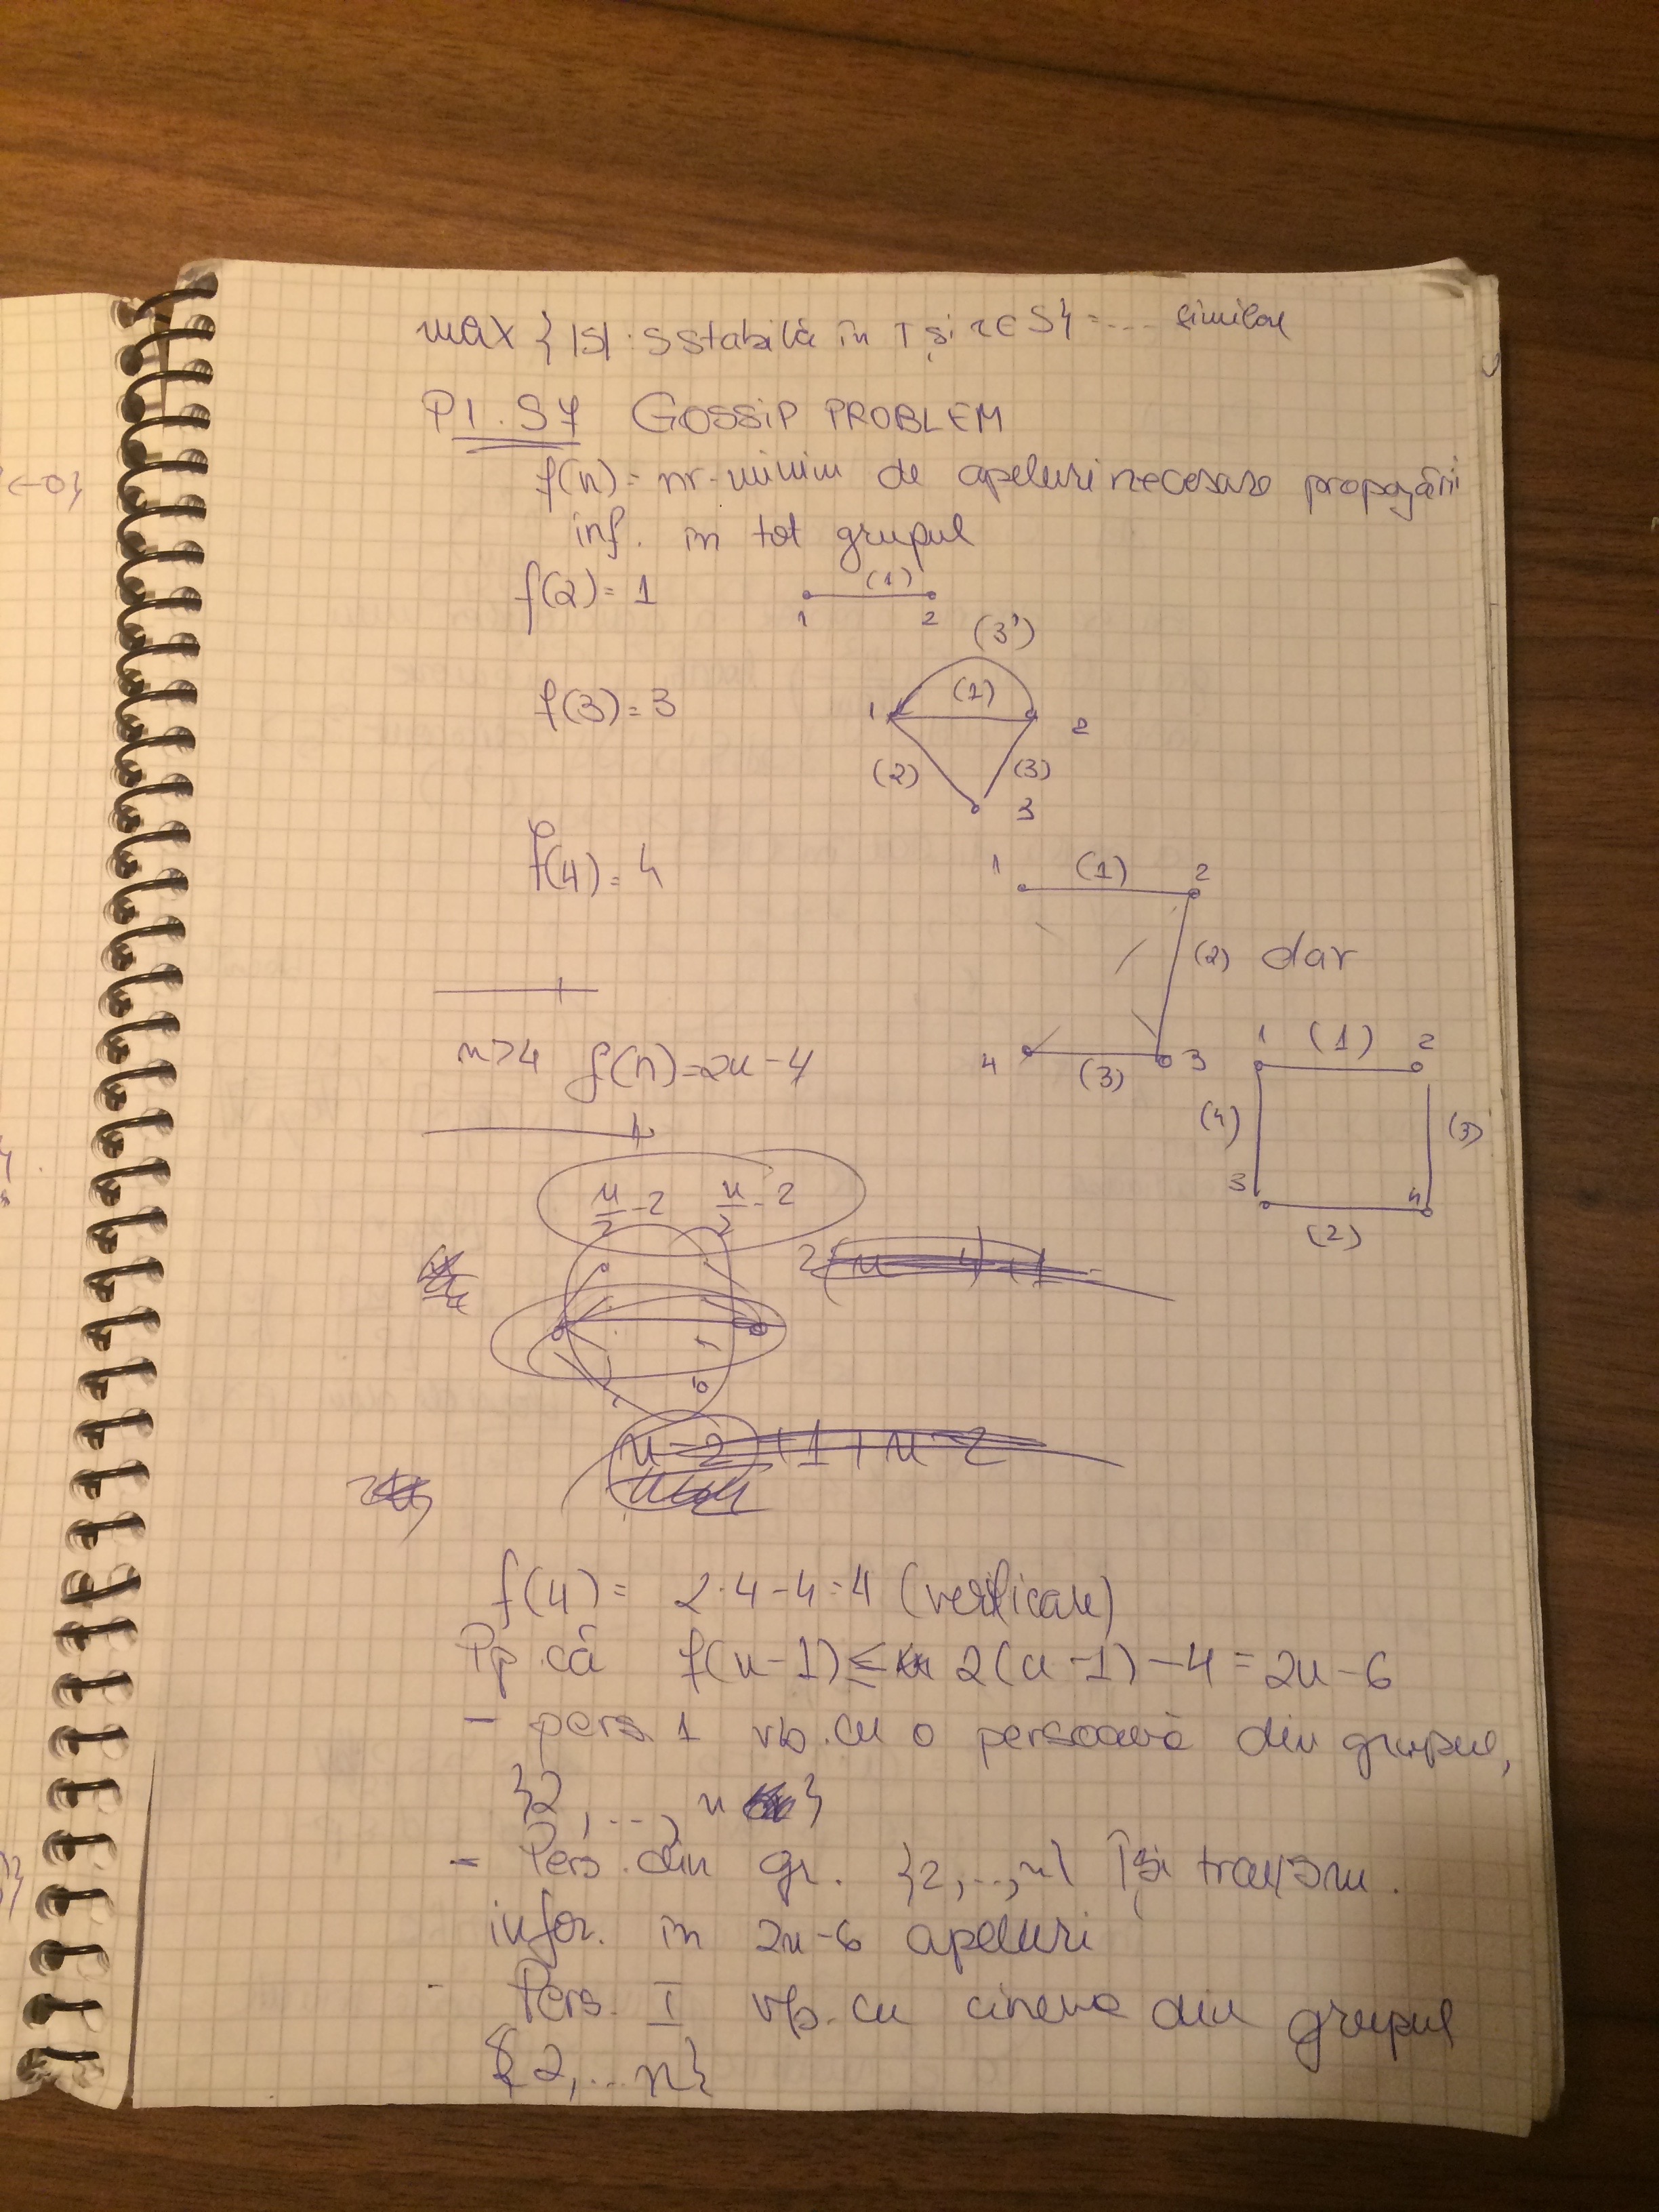 max {|S| : S stabilă în T și r∈S} = .... similar
P1. S7 GOSSIP PROBLEM
f(n) = nr. minim de apeluri necesare propagării
inf. în tot grupul
f(2) = 1
(1)
1 2
(3')
f(3) = 3
1 (1) 2
(2) (3)
3
f(4) = 4
1 (1) 2
(2) dar
4 (3) 3
n>4 f(n)=2n-4
1 (1) 2
(4) (3)
3 4
(2)
n/2 - 2 n/2 - 2
2(n-4)+1=
n-2+1+n-2
f(4) = 2·4-4=4 (verificare)
Pp. că f(n-1) ≤ 2(n-1)-4=2n-6
- pers 1 vb. cu o persoană din grupul,
{2, ..., n}
- Pers. din gr. {2,..,n} își transm.
infor. în 2n-6 apeluri
- Pers. I vb. cu cineva din grupul
{2,...n}